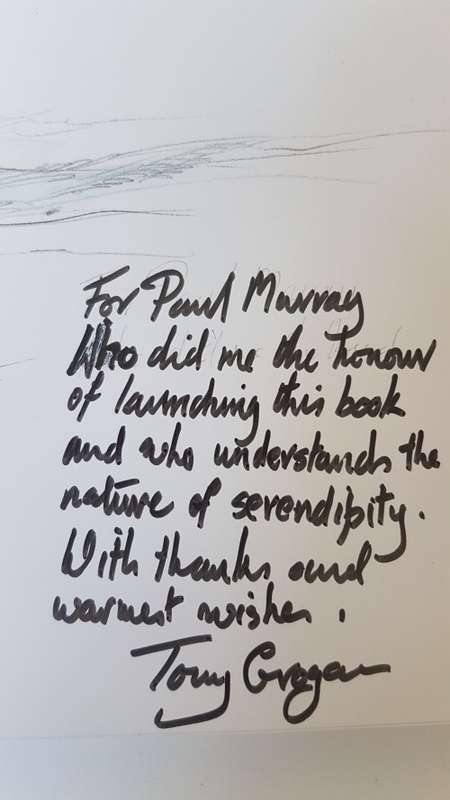 For Paul Murray
Who did me the honour
of launching this book
and who understands the
nature of serendipity.
With thanks and
warmest wishes.
Tony Grogan